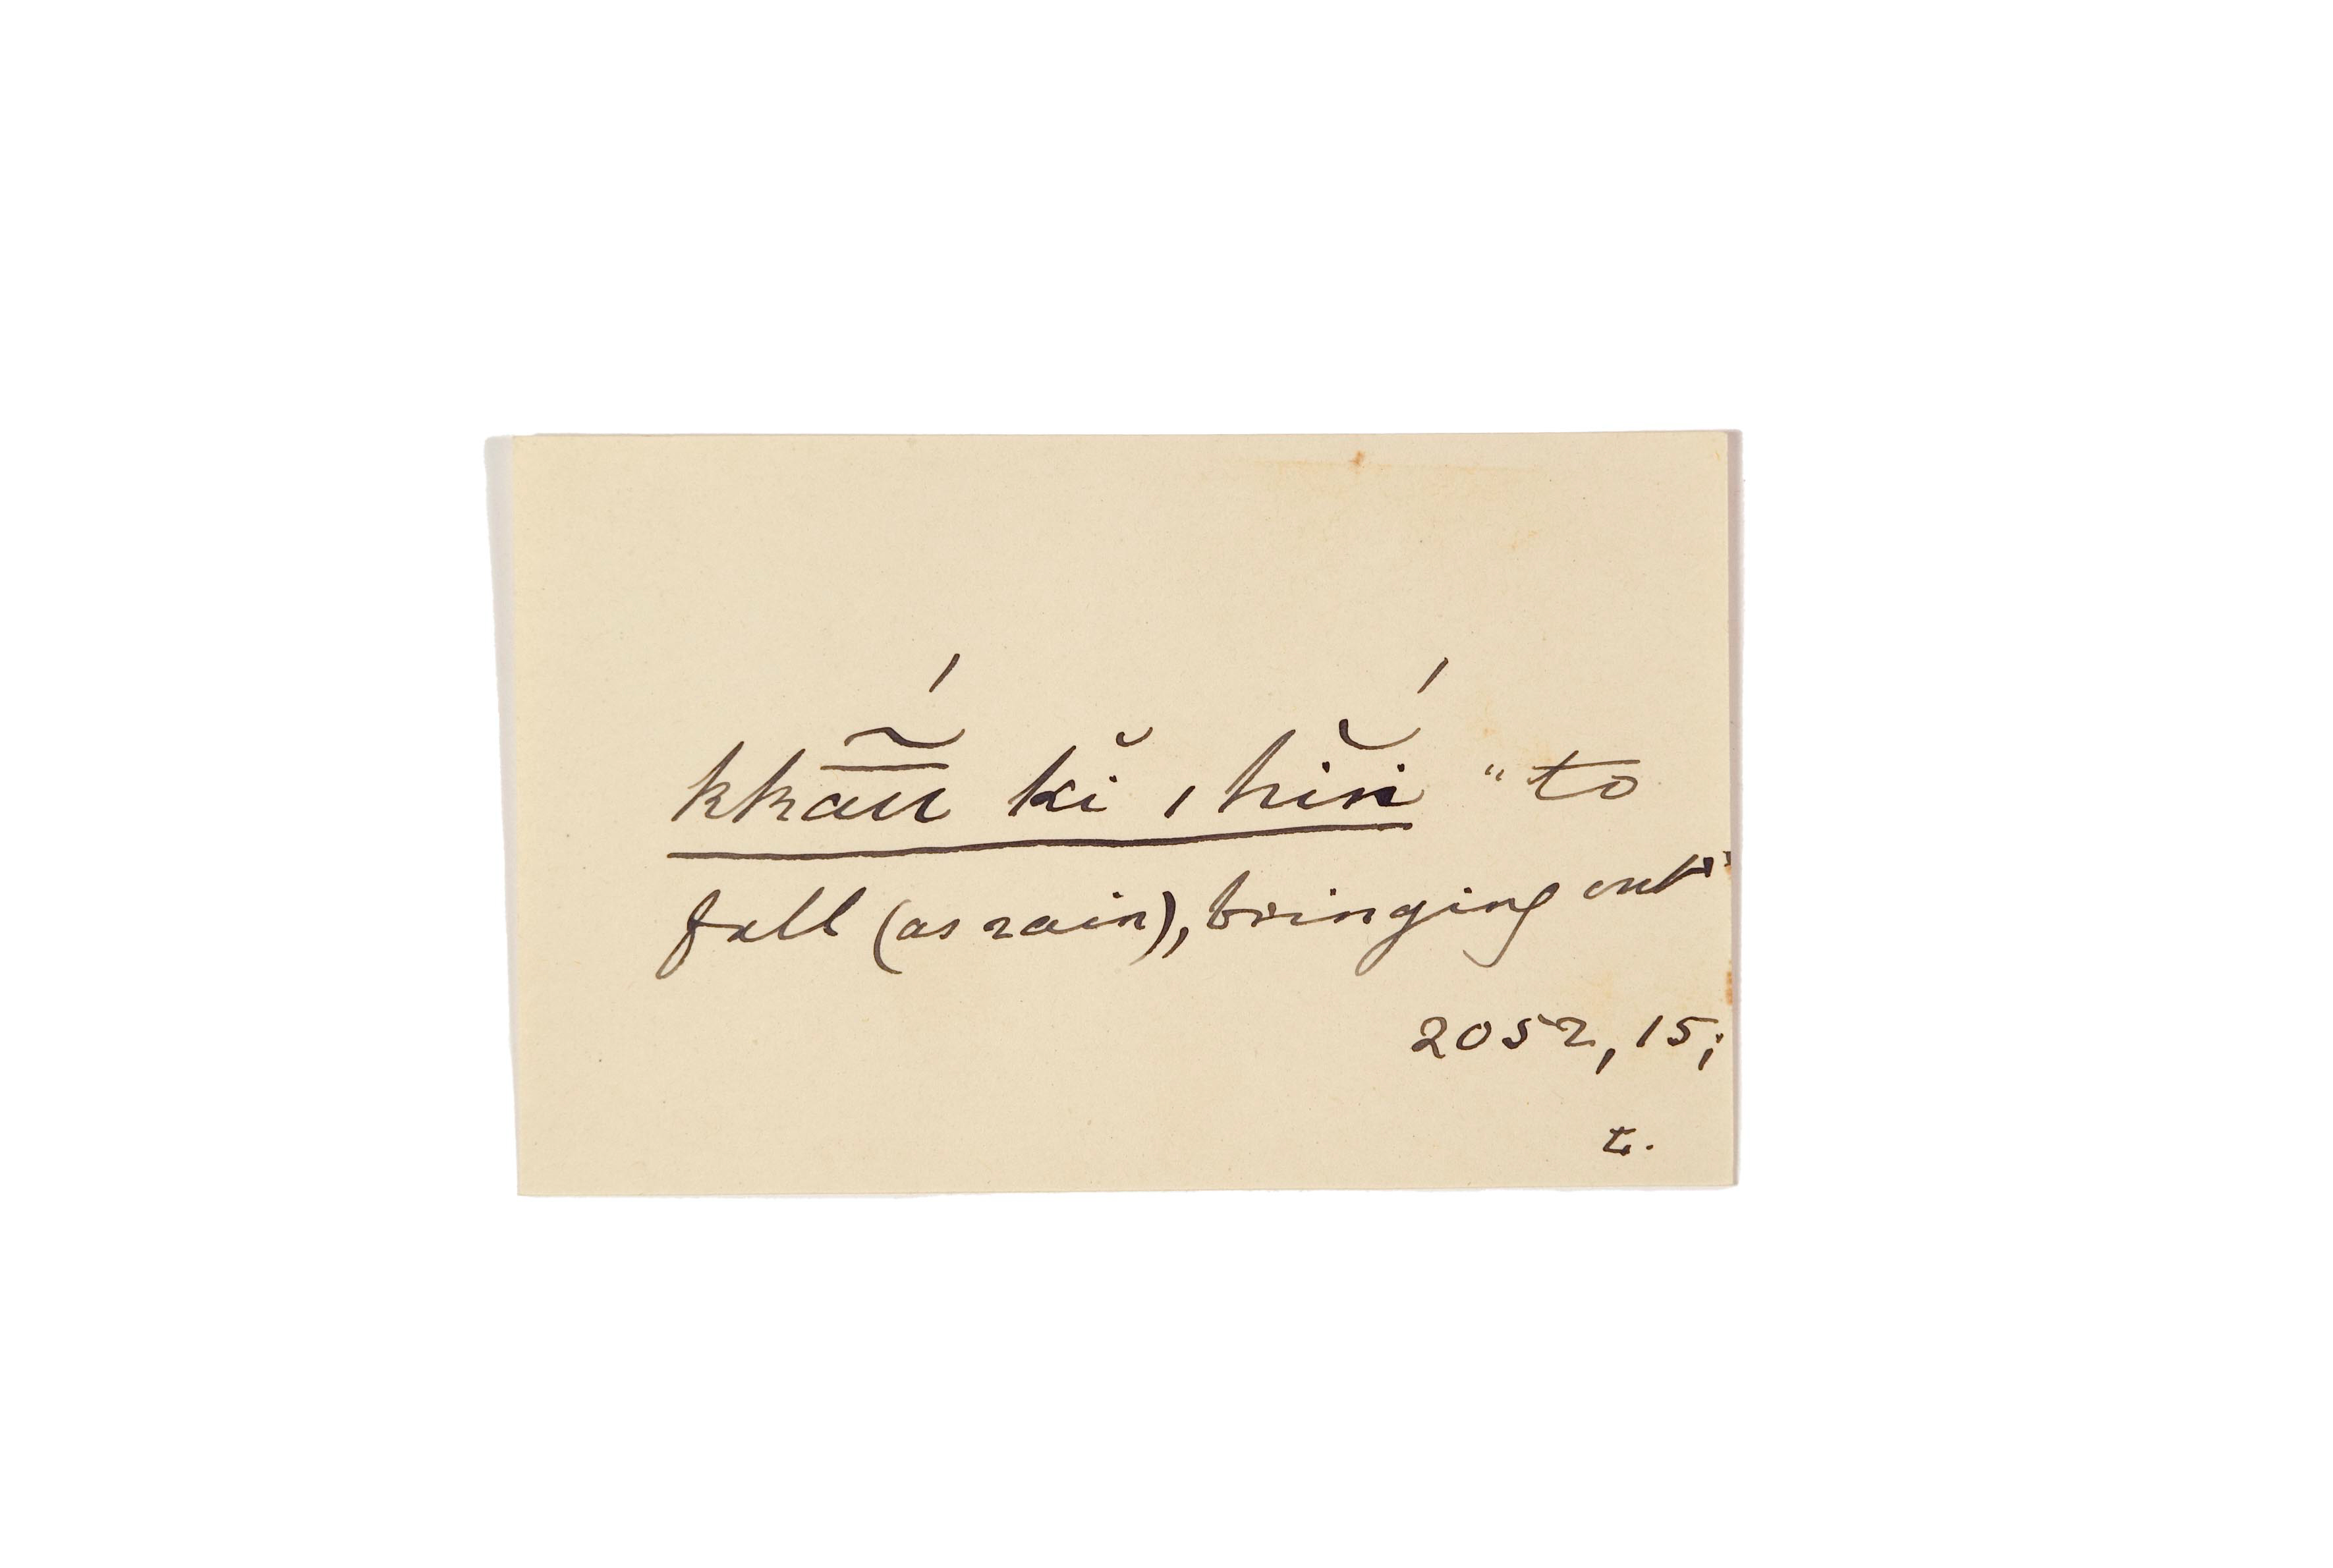 kkā̃ú kĭ ı hĭṅí "to
fall (as rain), bringing out"
2052, 15;
t.